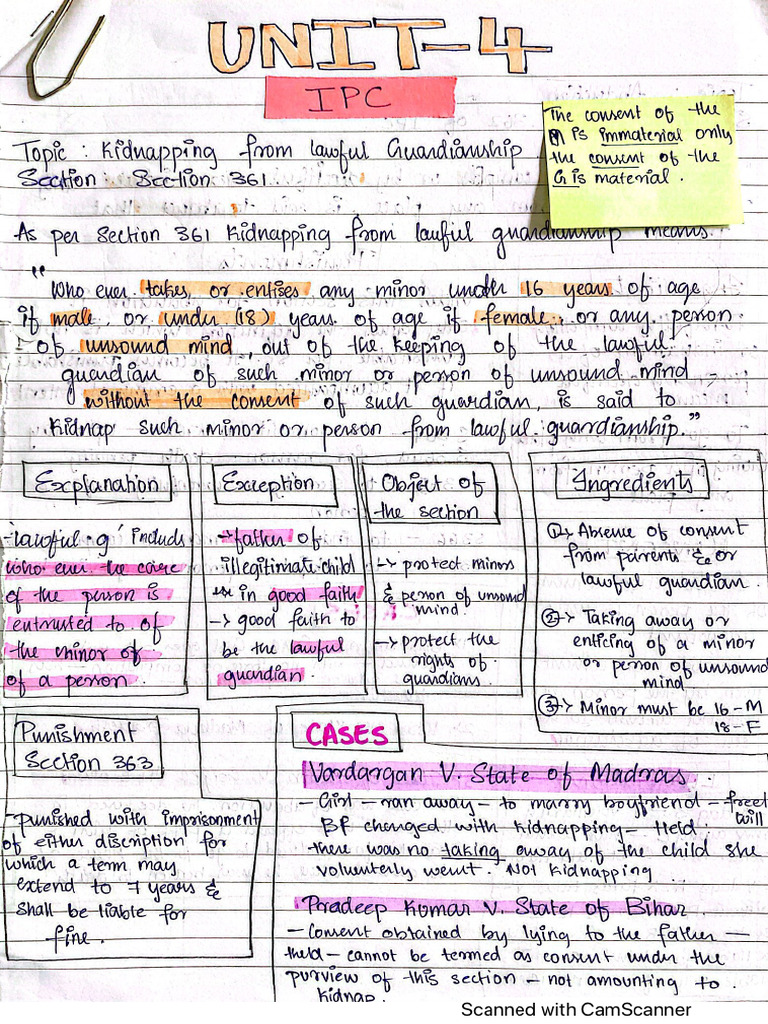 UNIT-4
IPC
The consent of the
M is immaterial only
the consent of the
G is material.
Topic : Kidnapping from lawful Guardianship
Section : Section 361.
As per Section 361 Kidnapping from lawful guardianship means.
"Who ever takes or entises any minor under 16 years of age
if male, or under (18) years of age if female, or any person
of unsound mind, out of the keeping of the lawful
guardian of such minor or person of unsound mind
without the consent of such guardian, is said to
kidnap such minor or person from lawful guardianship."
Explanation
-lawful g' includs
who ever the care
of the person is
entrusted to of
the minor of
of a person.
Exception
→ father of
illegitimate child
in good faith
→ good faith to
be the lawful
guardian.
Object of
the section
→ protect minors
& person of unsound
mind.
→ protect the
rights of
guardians.
Ingredients
①→ Absence of consent
from parents & or
lawful guardian.
②→ Taking away or
enticing of a minor
or person of unsound
mind
③→ Minor must be 16-M
18-F
Punishment
Section 363
Punished with imprisonment
of either discription for
which a term may
extend to 7 years &
shall be liable for
fine.
CASES
Vardargan V. State of Madras.
- Girl - ran away - to marry boyfriend - free
will
BF changed with kidnapping - Held.
there was no taking away of the child she
volunterly went. Not kidnapping.
Pradeep Kumar V. State of Bihar.
- Consent obtained by lying to the father -
held - cannot be termed as consent under the
purview of this section - not amounting to
kidnap.
Scanned with CamScanner